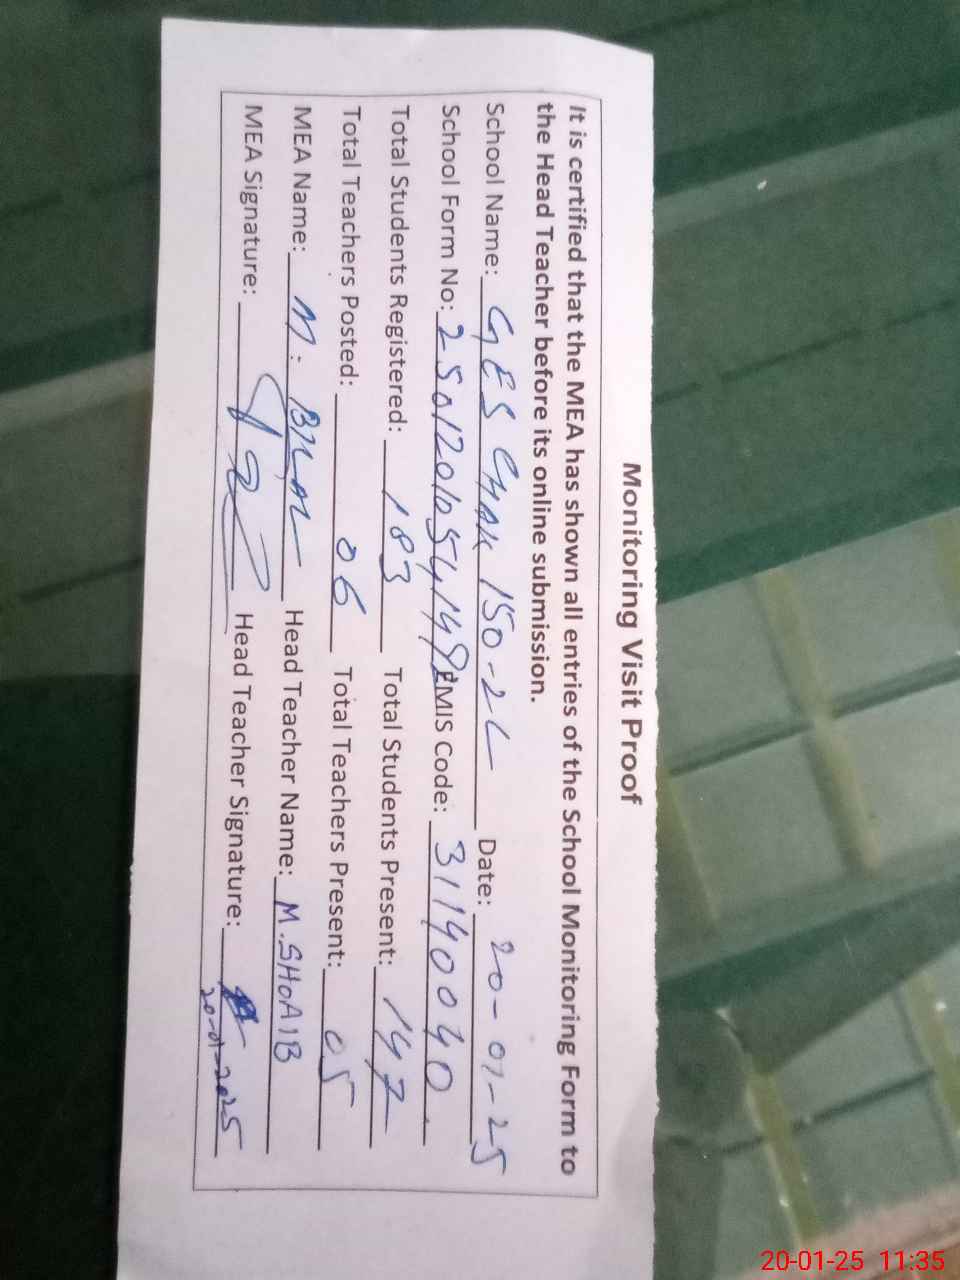 Monitoring Visit Proof
It is certified that the MEA has shown all entries of the School Monitoring Form to
the Head Teacher before its online submission.
School Name: GES CHAK 150-2L Date: 20-01-25
School Form No: EMIS Code: 31140040
Total Students Registered: 183 Total Students Present: 147
Total Teachers Posted: 06 Total Teachers Present: 05
MEA Name: M. BILAL Head Teacher Name: M.SHOAIB
MEA Signature: Head Teacher Signature:
20-01-2025
20-01-25 11:35